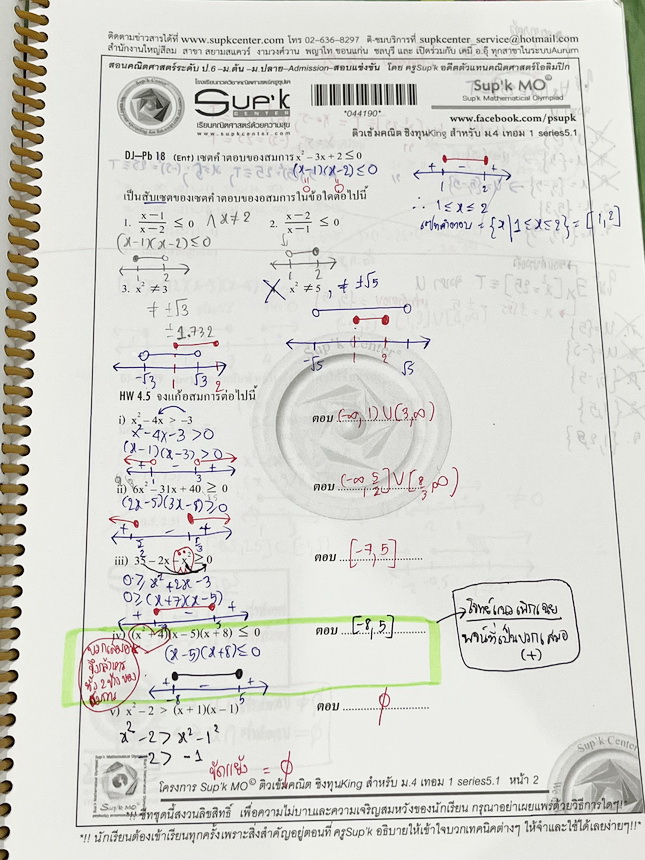 ติดตามข่าวสารได้ที่ www.supkcenter.com โทร 02-636-8297 ติ-ชมบริการที่ supkcenter_service@hotmail.com
สำนักงานใหญ่สีลม สาขา สยามสแควร์ งามวงศ์วาน พญาไท ขอนแก่น ชลบุรี และ เปิดร่วมกับ เคมี อ.อุ๊ ทุกสาขาในระบบAurum
สอนคณิตศาสตร์ระดับ ป.6 -ม.ต้น -ม.ปลาย-Admission-สอบแข่งขัน โดย ครูSup'k อดีตตัวแทนคณิตศาสตร์โอลิมปิก
โรงเรียนกวดวิชาคณิตศาสตร์ครูซุปเค
Sup'k
CENTER
เรียนคณิตศาสตร์ด้วยความสุข
www.supkcenter.com
*044190*
Sup'k MO©
Sup'k Mathematical Olympiad
www.facebook.com/psupk
ติวเข้มคณิต ซิงทุนKing สำหรับ ม.4 เทอม 1 series5.1
DJ–Pb 18 (Ent) เซตคำตอบของสมการ x² – 3x + 2 ≤ 0
(x-1)(x-2) ≤ 0
+ - +
1 2
∴ 1 ≤ x ≤ 2
เซตคำตอบ = {x | 1 ≤ x ≤ 2} = [1, 2]
เป็นสับเซตของเซตคำตอบของอสมการในข้อใดต่อไปนี้
1. x – 1 / x – 2 ≤ 0 ∧ x ≠ 2 2. x – 2 / x – 1 ≤ 0
(x-1)(x-2) ≤ 0
1 2 1 2
3. x² ≠ 3 x² ≠ 5 , ≠ ±√5
≠ ±√3
± 1.732
-√3 1 √3 2
-√5 1 2 √5
Sup'k Center
HW 4.5 จงแก้อสมการต่อไปนี้
i) x² – 4x > –3 ตอบ (-∞, 1) ∪ (3, ∞)
x² - 4x - 3 > 0
(x-1)(x-3) > 0
+ 1 - 3 +
ii) 6x² – 31x + 40 ≥ 0 ตอบ (-∞, 5/2] ∪ [8/3, ∞)
(2x-5)(3x-8) ≥ 0
iii) 35 – 2x – x² ≥ 0 ตอบ [-7, 5]
0 ≥ x² + 2x - 3
0 ≥ (x+7)(x-5)
+ - +
iv) (x² + 4)(x – 5)(x + 8) ≤ 0 ตอบ [-8, 5]
(x-5)(x+8) ≤ 0
+ -8 - 5 +
พจน์ที่เป็นบวกเสมอ
(+)
v) x² – 2 > (x + 1)(x – 1) ตอบ ∅
x² - 2 > x² - 1²
-2 > -1
ขัดแย้ง = ∅
Sup'k Center
โครงการ Sup'k MO© ติวเข้มคณิต ซิงทุนKing สำหรับ ม.4 เทอม 1 series5.1 หน้า 2
Sup'k MO©
*!! ชีทชุดนี้สงวนลิขสิทธิ์ เพื่อความไม่บาปและความเจริญสมหวังของนักเรียน กรุณาอย่าเผยแพร่ด้วยวิธีการใดๆ!!*
*!! นักเรียนต้องเข้าเรียนทุกครั้งเพราะสิ่งสำคัญอยู่ตอนที่ ครูSup'k อธิบายให้เข้าใจบวกเทคนิคต่างๆ ให้จำและใช้ได้เลยง่ายๆ!!*